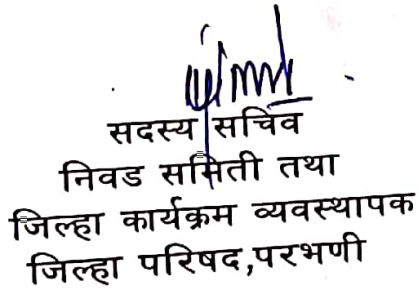 सदस्य सचिव
निवड समिती तथा
जिल्हा कार्यक्रम व्यवस्थापक
जिल्हा परिषद,परभणी